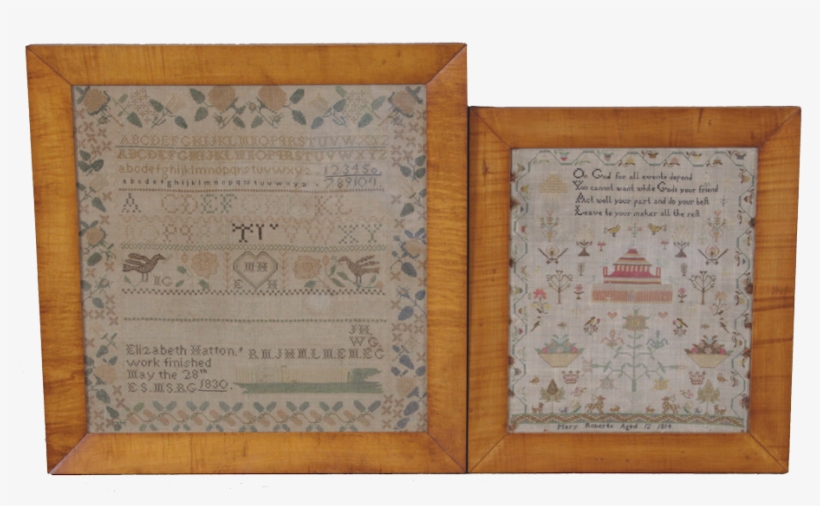 ABCDEFGHIJKLMNOPQRSTUVWXYZ
ABCDEFGHIJKLMNOPQRSTUVWXYZ
abcdefghijklmnopqrstuvwxyz 123456
abcdefghijklmnopqrstuvwxyz 789101
A CDEF
PQ TU XY
MH
IG EH
JH
WG
Elizabeth Hatton. RMJHMLMEMEG
work finished
May the 28th
E.S.MS.RG 1830.
On God for all events depend
You cannot want while Gods your friend
Act well your part and do your best
Leave to your maker all the rest
Mary Roberts Aged 12 1814